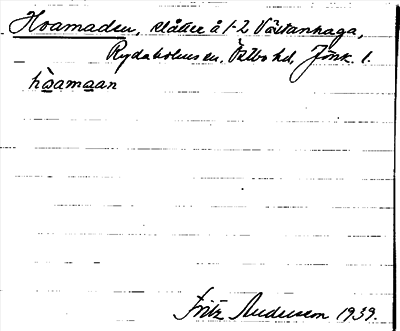 Hvamaden, slåtter å 1-2 Västanhaga,
Rydaholms sn. Östbo hd. Jönk. l.
hòamaan
Fritz Anderson 1939.